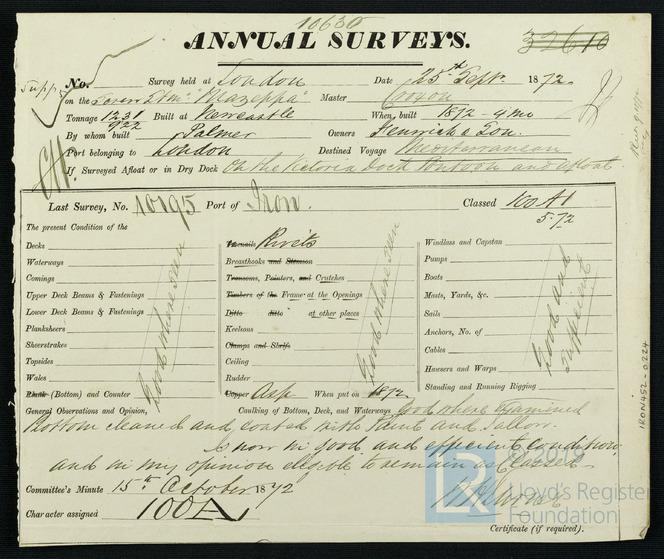 10630
ANNUAL SURVEYS.
32610
No. Survey held at London Date 25th Sept 1872
on the Screw Str "Mazeppa" Master
Tonnage 1231 Built at Newcastle When built 1872 4 mo
922
By whom built Palmer Owners Fenwick & Son.
Port belonging to London Destined Voyage Mediterranean
If Surveyed Afloat or in Dry Dock On the Victoria Dock Pontoon and afloat
Last Survey, No. 10195 Port of Iron. Classed 100 A1
5.72
The present Condition of the
Decks
Waterways
Comings
Upper Deck Beams & Fastenings
Lower Deck Beams & Fastenings
Planksheers
Sheerstrakes
Topsides
Wales
Plank (Bottom) and Counter
Good where seen
Treenails Rivets
Breasthooks and Stemson
Transoms, Pointers, and Crutches
Timbers of the Frame at the Openings
Ditto ditto at other places
Keelsons
Clamps and Shelfs
Ceiling
Rudder
Copper When put on 1872
Good where seen
Windlass and Capstan
Pumps
Boats
Masts, Yards, &c.
Sails
Anchors, No. of
Cables
Hawsers and Warps
Standing and Running Rigging
Good and
efficient
General Observations and Opinion, Caulking of Bottom, Deck, and Waterways Good where examined
Bottom cleaned and coated with Paint and Tallow.
Is now in good and efficient condition,
and in my opinion eligible to remain as classed
Committee's Minute 15th October 1872
Character assigned 100A1
Certificate (if required).
IRON452-0224
© 2019
LR
Lloyd's Register
Foundation